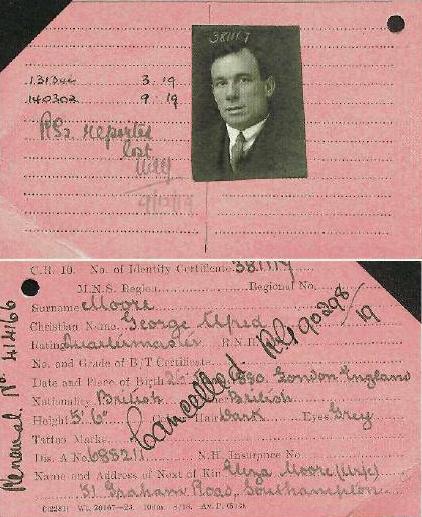 381117
131322 3 19
140302 9 19
RS2 reported
lost
C.R. 10. No. of Identity Certificate 381117
M.N.S. Region Regional No.
Surname Moore
Christian Name George Alfred
Rating Quartermaster R.N.R.
No. and Grade of B/T Certificate
Date and Place of Birth 1880 London England
Nationality British British
Height 5' 6" Hair Dark Eyes Grey
Tattoo Marks
Dis. A No 685211 N.H. Insurance No
Name and Address of Next of Kin Eliza Moore (Wife)
31 Graham Road, Southampton
Cancelled. RS2 90298/19
Renewal No. 414166